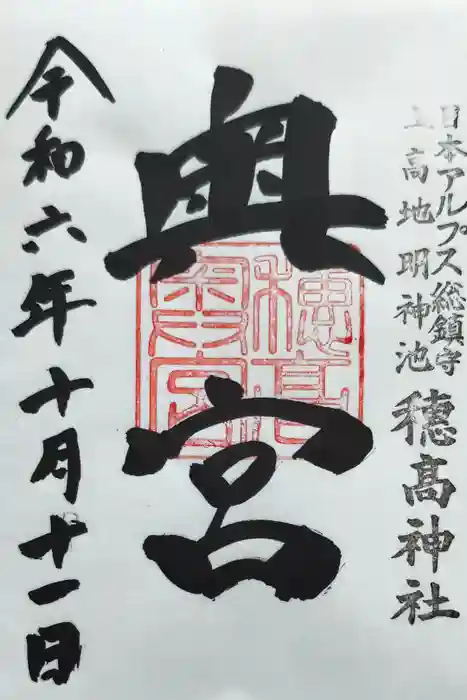 日本アルプス総鎮守
上高地明神池
穂髙神社
奥宮
穂高奥宮
令和六年十月十一日